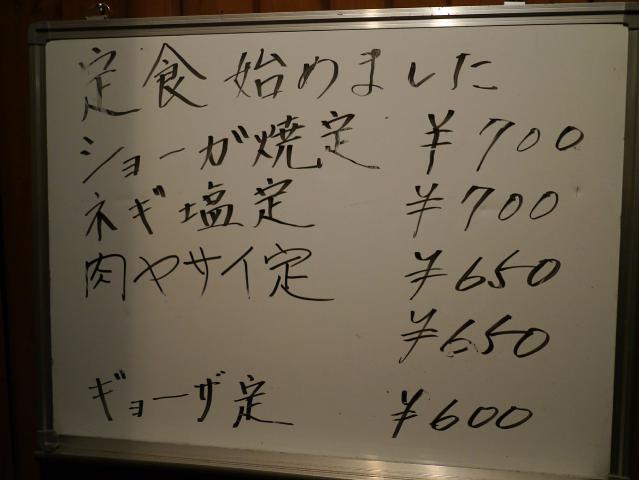 定食 始めました
ショーガ焼定 ¥700
ネギ塩定 ¥700
肉ヤサイ定 ¥650
¥650
ギョーザ定 ¥600